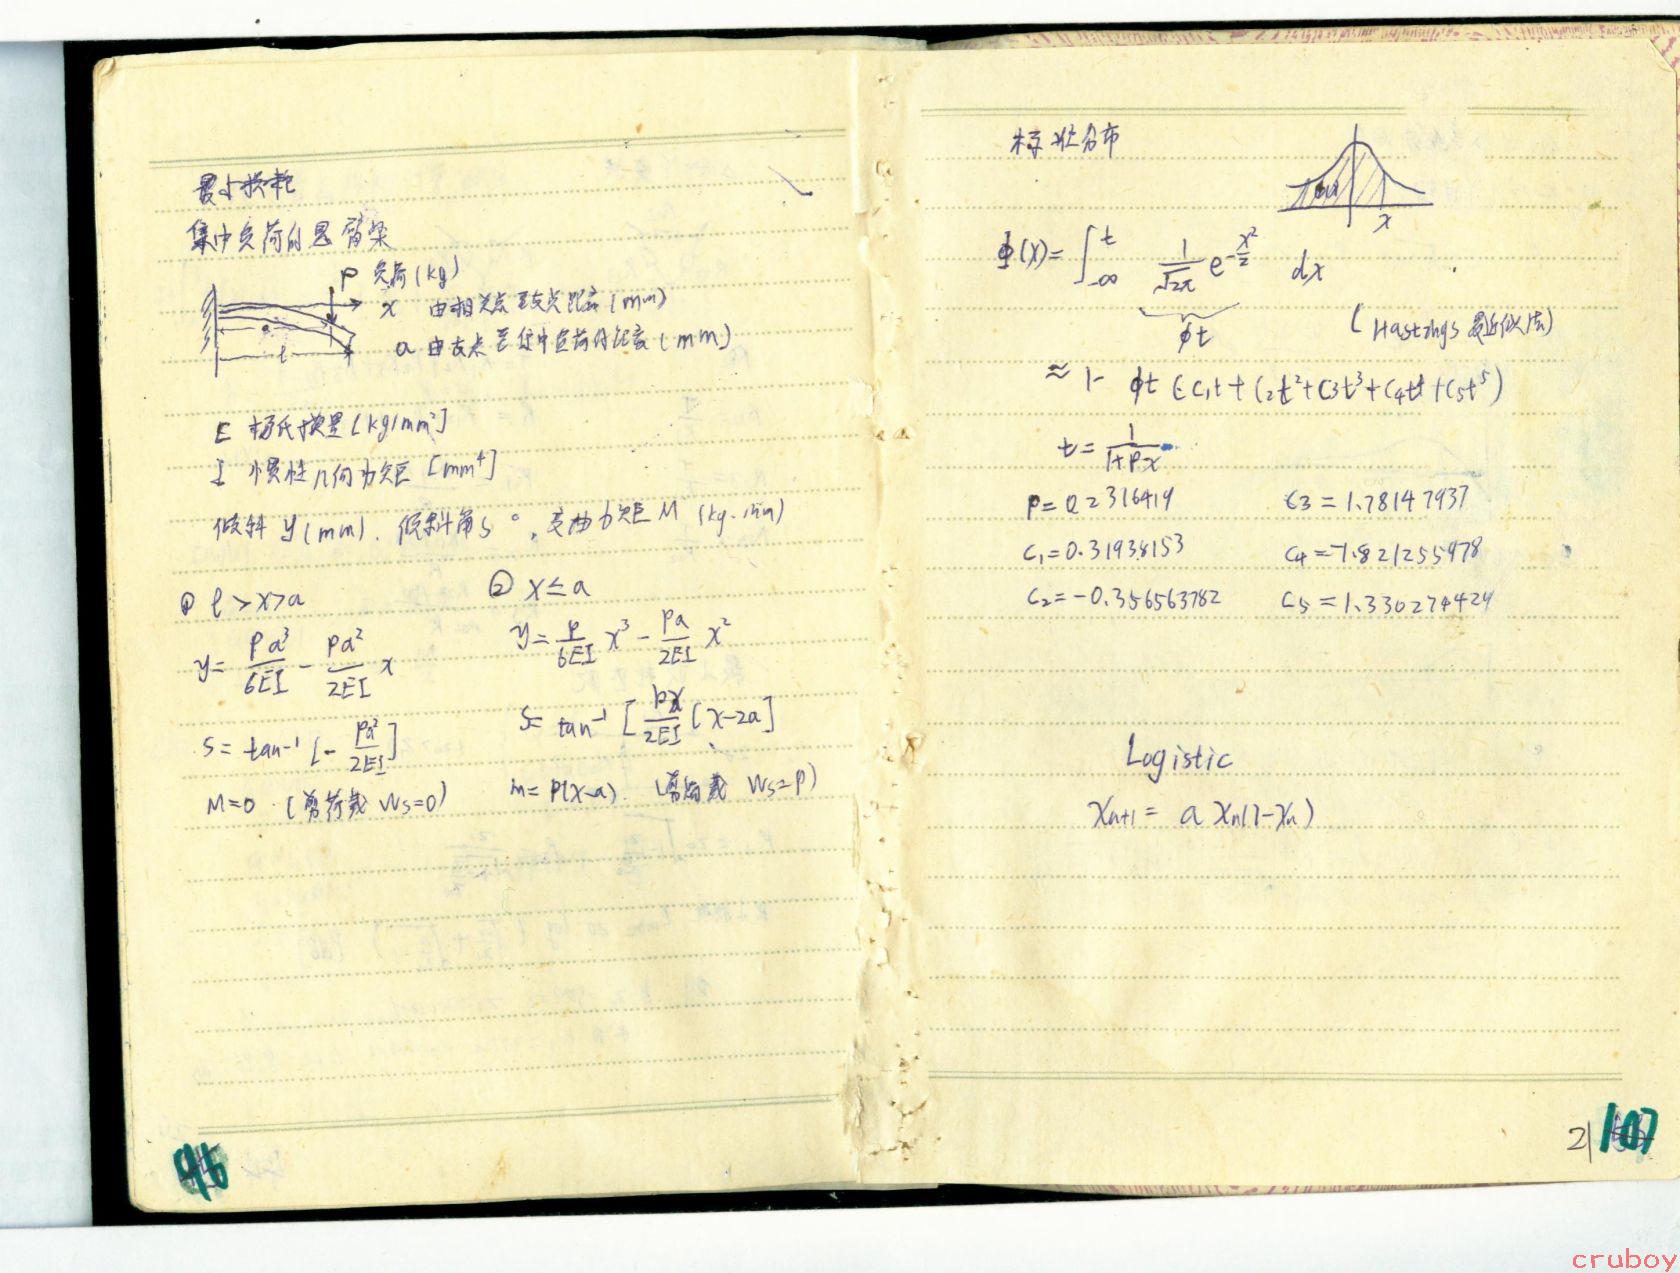 最小损耗
集中负荷的悬臂梁
P 负荷(kg)
x 由相关点至支点距离(mm)
a 由支点至集中负荷的距离(mm)
l
E 杨氏模量[kg/mm²]
I 惯性几何力矩 [mm⁴]
倾斜 y(mm). 倾斜角 s °, 弯曲力矩 M (kg·mm)
① l > x > a
y = Pa³/6EI - Pa²/2EI x
S = tan⁻¹ [- Pa²/2EI]
M=0 . (剪荷载 Ws=0)
② x ≤ a
y = P/6EI x³ - Pa/2EI x²
S = tan⁻¹ [Px/2EI (x-2a]
m = P(x-a). (剪荷载 Ws=P)
46
分布
x
ϕ(x) = ∫_-∞^t 1/√2π e^-x²/2 dx
ϕt
(Hastings 最近似法)
≈ 1- ϕt (c₁t + c₂t² + c3t³ + c₄t⁴ + c₅t⁵)
t = 1/1+Px
P = 0.2316419
c₁ = 0.31938153
c₂ = -0.356563782
c3 = 1.78147937
c4 = -1.821255978
c5 = 1.330274429
Logistic
xn+1 = a xn(1-xn)
21 107
cruboy